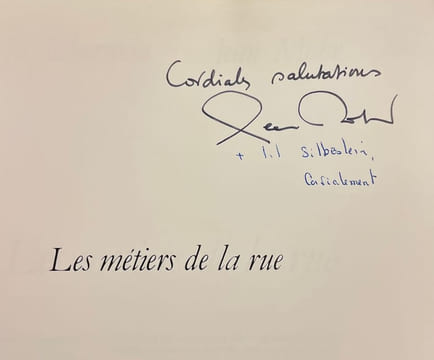 Cordiales salutations
Jean
+ Lil Silbestein,
Cordialement
Les métiers de la rue